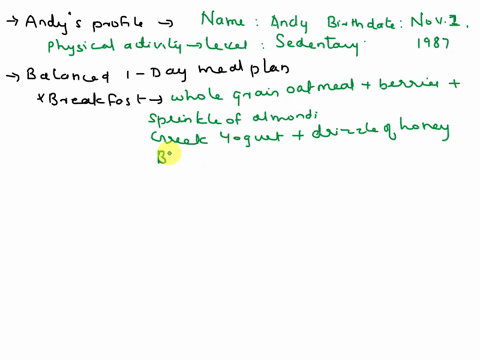 → Andy's profile → Name : Andy Birthdate : Nov. 1.
Physical activity → Level : Sedentary 1987
→ Balanced 1-Day meal plan
* Breakfast → whole grain oatmeal + berries +
sprinkle of almonds
Greek Yogurt + drizzle of honey
B